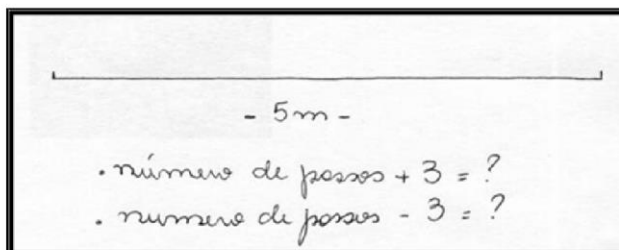 - 5m -
. número de passos + 3 = ?
. numero de passos - 3 = ?